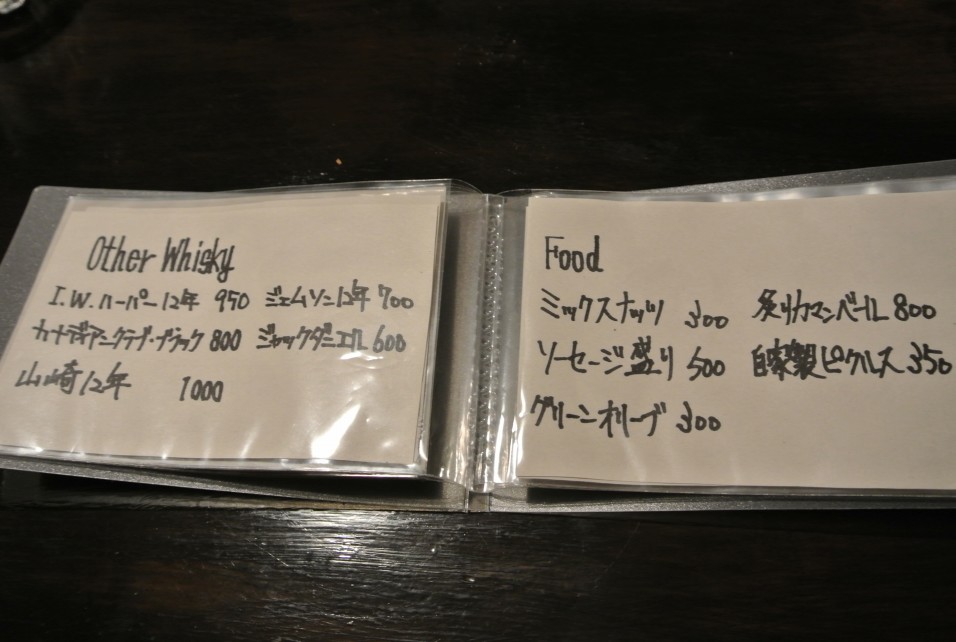 Other Whisky
I.W.ハーパー12年 950 ジェムソン12年 700
カナディアンクラブ・ブラック 800 ジャックダニエル 600
山崎12年 1000
Food
ミックスナッツ 300 炙りカマンベール 800
ソーセージ盛り 500 自家製ピクルス 350
グリーンオリーブ 300